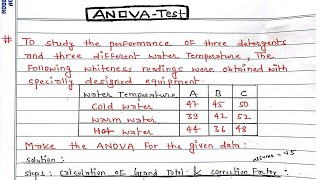 ANOVA-Test
# To study the performance of three detergents
and three different water Temperature, The
Following whiteness readings were obtained with
specially designed equipment.
water Temperature A B C
Cold water 47 45 50
warm water 39 42 52
Hot water 44 36 48
Make the ANOVA For the given data:
solution: assume = 45
step1: calculation of Grand Total & correction Factor: